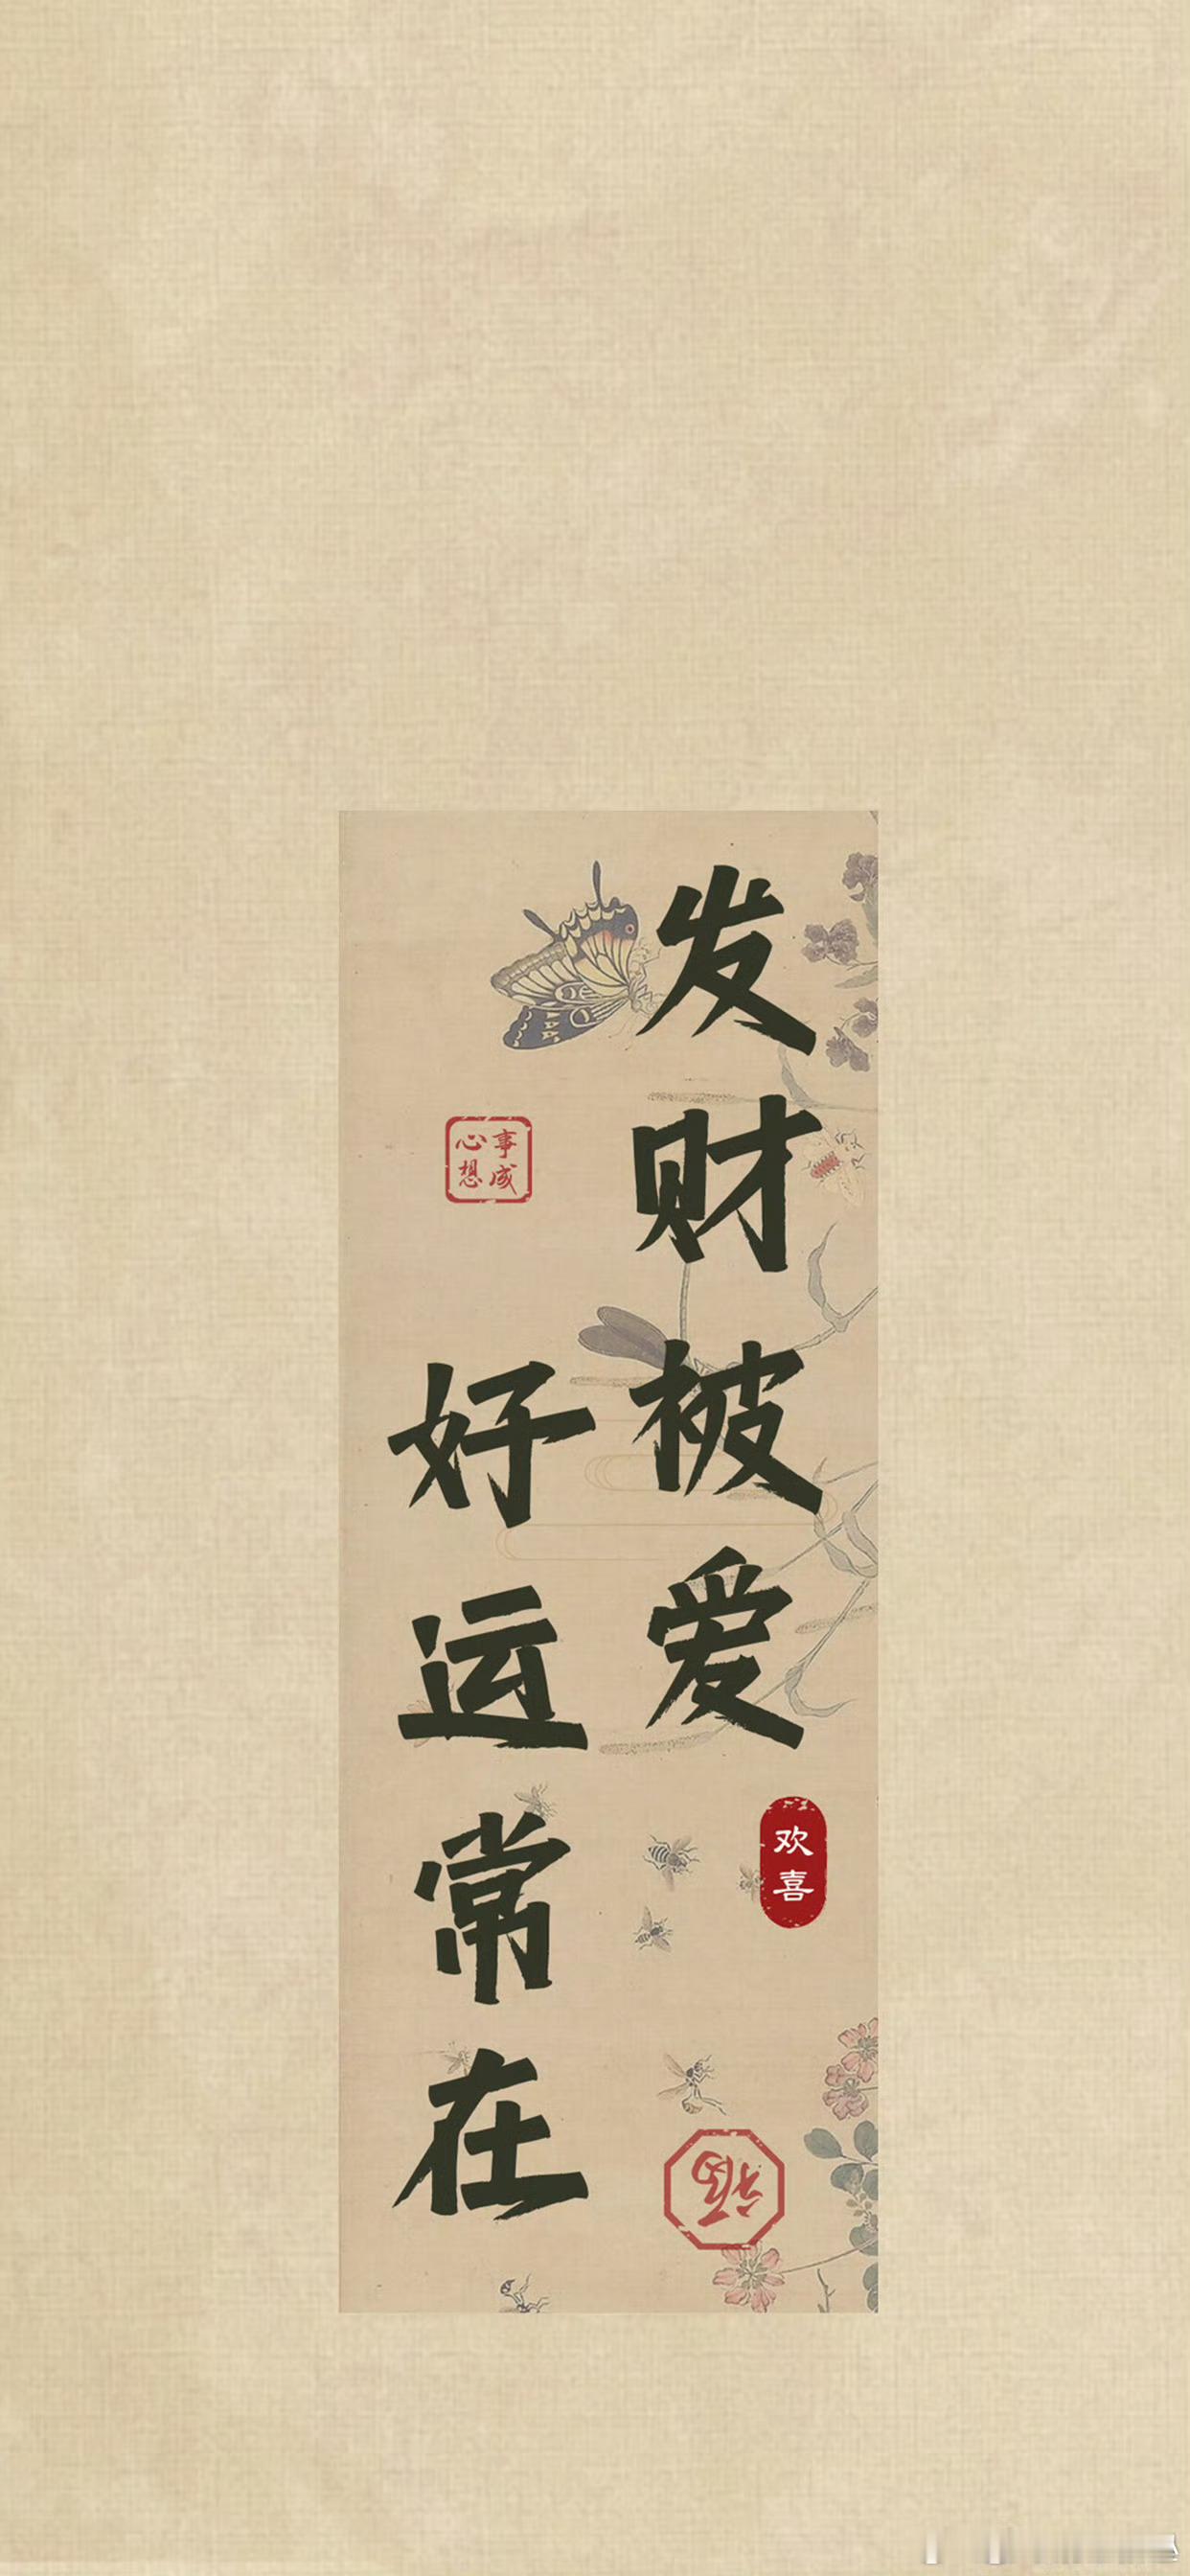 发财被爱
好运常在
心想
事成
欢喜
福